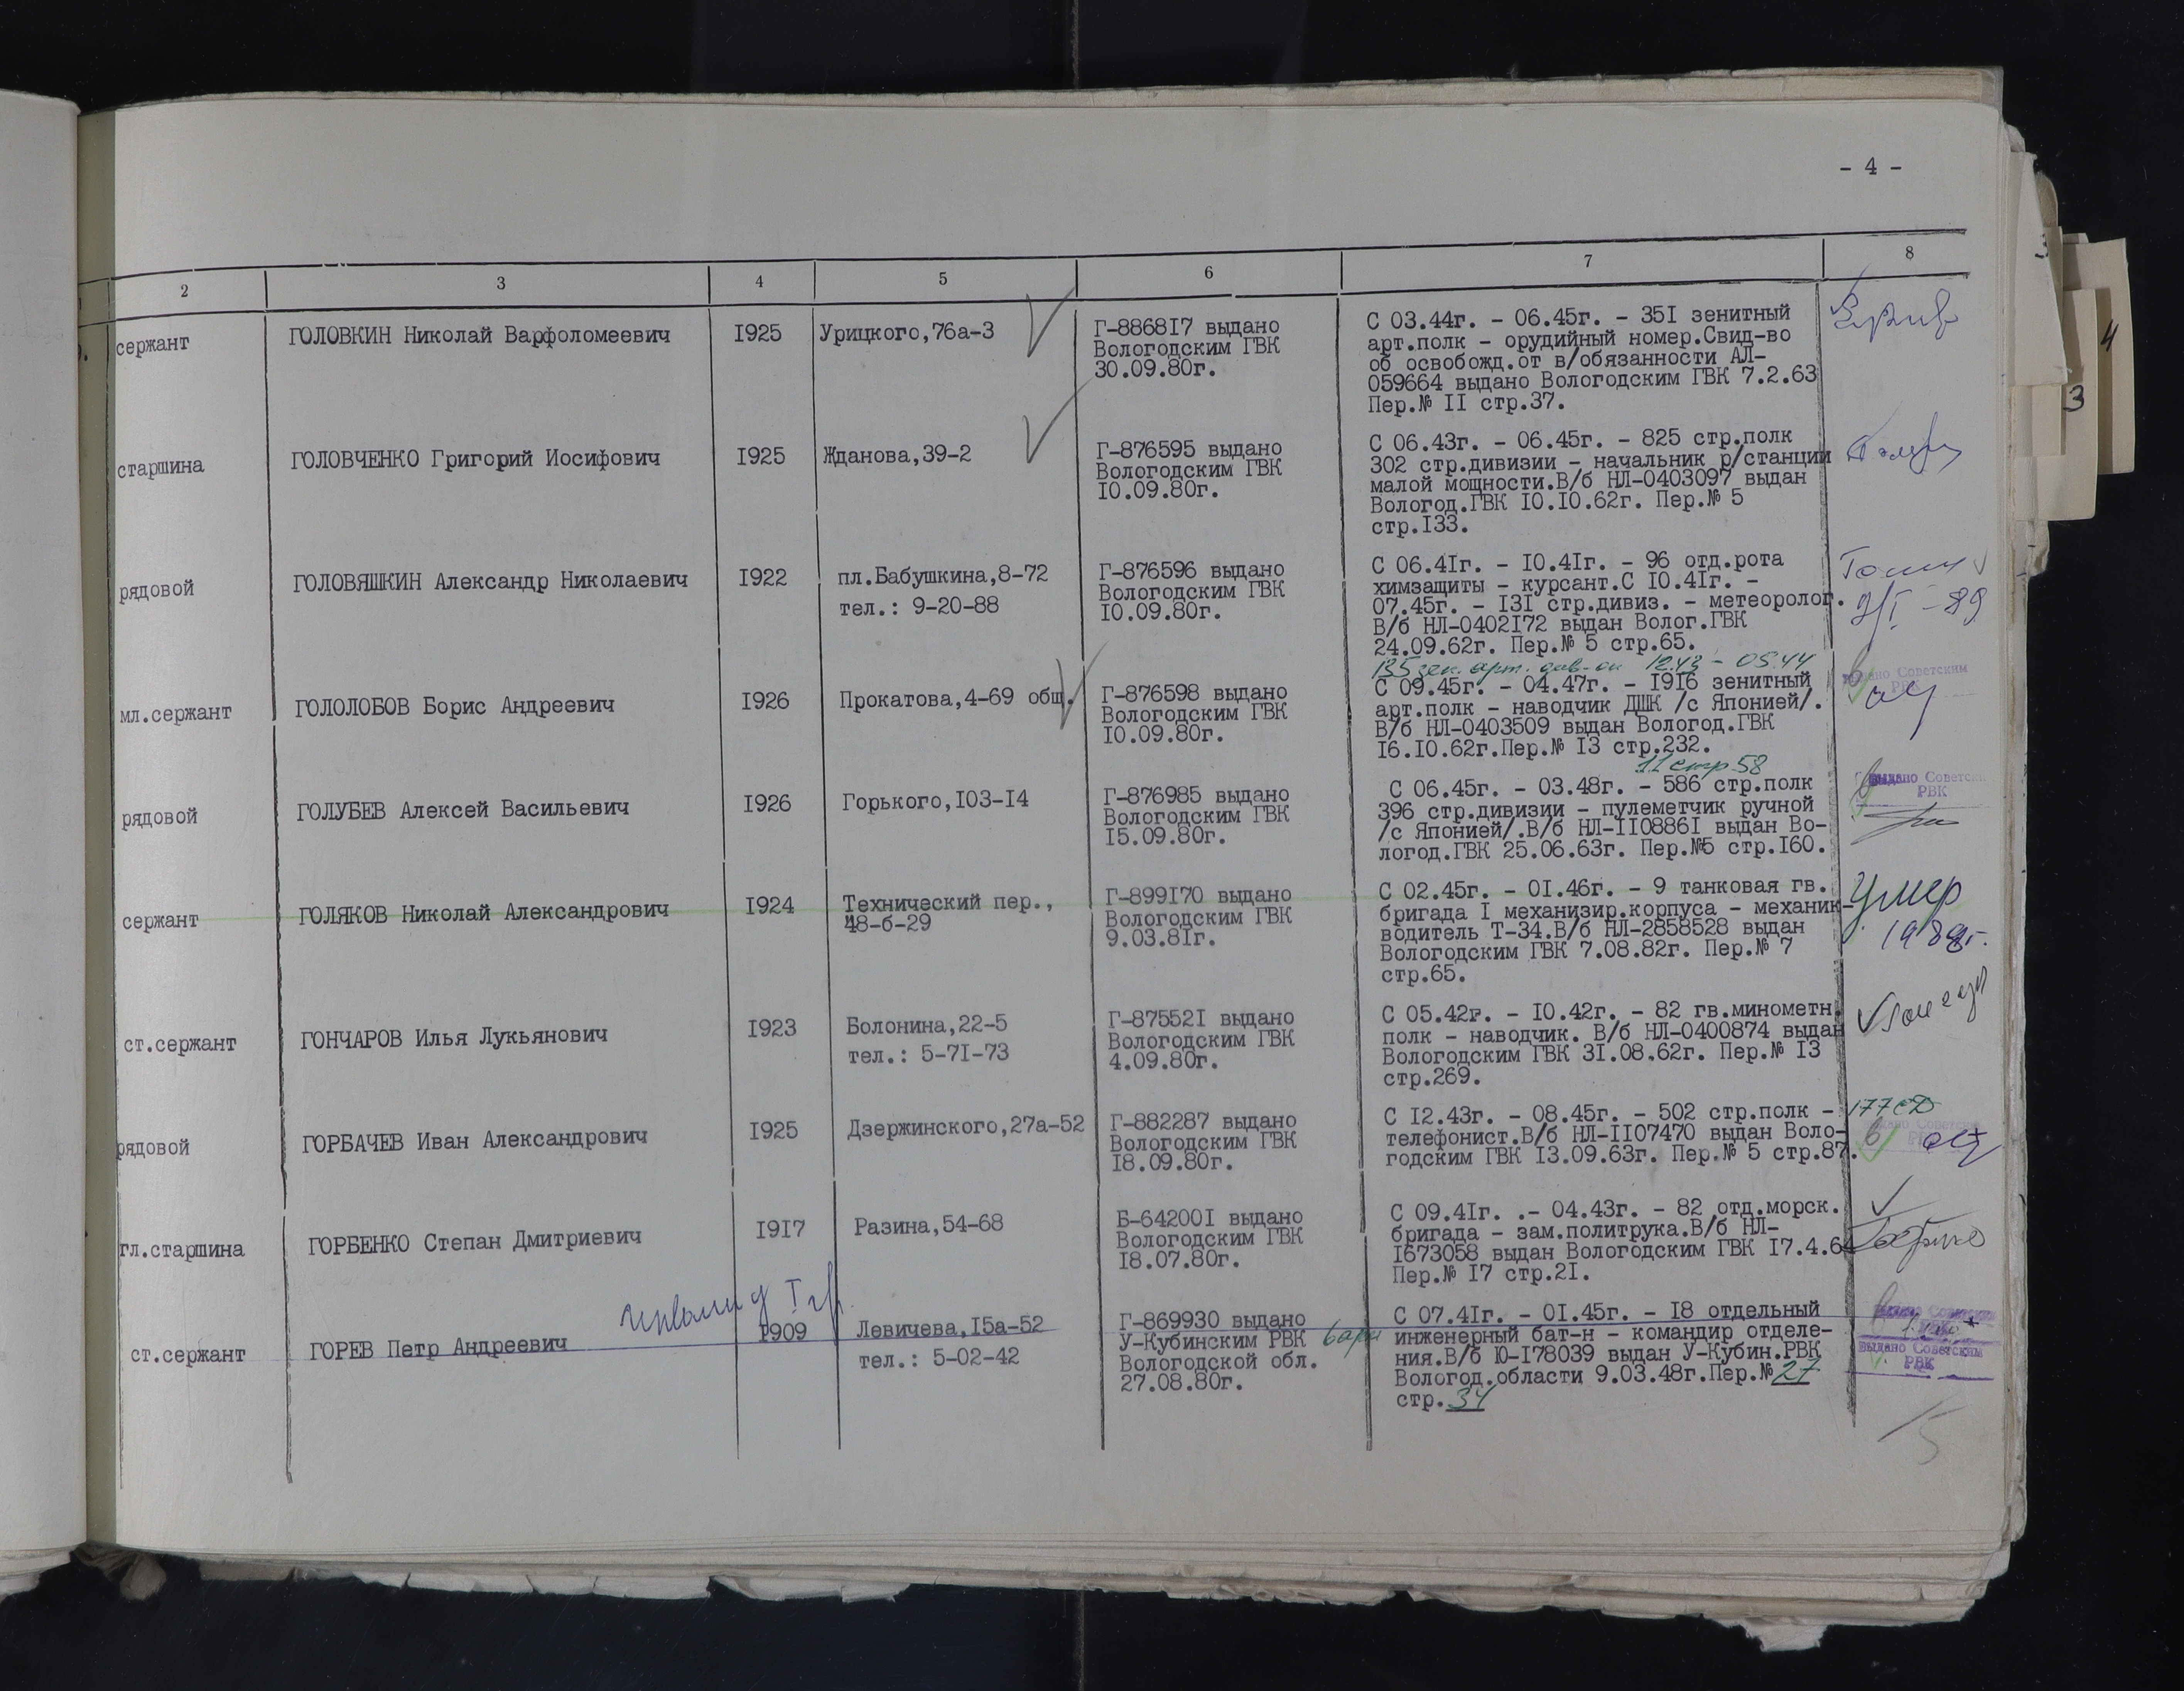 - 4 -
2 3 4 5 6 7 8
сержант ГОЛОВКИН Николай Варфоломеевич I925 Урицкого,76а-3 Г-8868I7 выдано С 03.44г. - 06.45г. - 35I зенитный
Вологодским ГВК арт.полк - орудийный номер.Свид-во
30.09.80г. об освобожд.от в/обязанности АЛ-
059664 выдано Вологодским ГВК 7.2.63
Пер.№ II стр.37.
старшина ГОЛОВЧЕНКО Григорий Иосифович I925 Жданова,39-2 Г-876595 выдано С 06.43г. - 06.45г. - 825 стр.полк
Вологодским ГВК 302 стр.дивизии - начальник р/станции
I0.09.80г. малой мощности.В/б НЛ-0403097 выдан
Вологод.ГВК I0.I0.62г. Пер.№ 5
стр.I33.
рядовой ГОЛОВЯШКИН Александр Николаевич I922 пл.Бабушкина,8-72 Г-876596 выдано С 06.4Iг. - I0.4Iг. - 96 отд.рота
Вологодским ГВК химзащиты - курсант.С I0.4Iг. -
тел.: 9-20-88 I0.09.80г. 07.45г. - I3I стр.дивиз. - метеоролог.
В/б НЛ-0402I72 выдан Волог.ГВК
24.09.62г. Пер.№ 5 стр.65.
135 зен. арт. див-он 12.43 - 05.44
мл.сержант ГОЛОЛОБОВ Борис Андреевич I926 Прокатова,4-69 общ. Г-876598 выдано С 09.45г. - 04.47г. - I9I6 зенитный выдано Советским
Вологодским ГВК арт.полк - наводчик ДШК /с Японией/. РВК
I0.09.80г. В/б НЛ-0403509 выдан Вологод.ГВК
I6.I0.62г.Пер.№ I3 стр.232.
11 стр 58
рядовой ГОЛУБЕВ Алексей Васильевич I926 Горького,I03-I4 Г-876985 выдано С 06.45г. - 03.48г. - 586 стр.полк выдано Советским
Вологодским ГВК 396 стр.дивизии - пулеметчик ручной РВК
I5.09.80г. /с Японией/.В/б НЛ-II0886I выдан Во-
логод.ГВК 25.06.63г. Пер.№5 стр.I60.
сержант ГОЛЯКОВ Николай Александрович I924 Технический пер., Г-899I70 выдано С 02.45г. - 0I.46г. - 9 танковая гв. Умер
48-б-29 Вологодским ГВК бригада I механизир.корпуса - механик-
9.03.8Iг. водитель Т-34.В/б НЛ-2858528 выдан
Вологодским ГВК 7.08.82г. Пер.№ 7
стр.65.
ст.сержант ГОНЧАРОВ Илья Лукьянович I923 Болонина,22-5 Г-87552I выдано С 05.42г. - I0.42г. - 82 гв.минометн.
Вологодским ГВК полк - наводчик. В/б НЛ-0400874 выдан
тел.: 5-7I-73 4.09.80г. Вологодским ГВК 3I.08.62г. Пер.№ I3
стр.269.
рядовой ГОРБАЧЕВ Иван Александрович I925 Дзержинского,27а-52 Г-882287 выдано С I2.43г. - 08.45г. - 502 стр.полк - 177 сд
Вологодским ГВК телефонист.В/б НЛ-II07470 выдан Воло-
I8.09.80г. годским ГВК I3.09.63г. Пер.№ 5 стр.87.
гл.старшина ГОРБЕНКО Степан Дмитриевич I9I7 Разина,54-68 Б-64200I выдано С 09.4Iг. .- 04.43г. - 82 отд.морск.
Вологодским ГВК бригада - зам.политрука.В/б НЛ-
I8.07.80г. I673058 выдан Вологодским ГВК I7.4.6
Пер.№ I7 стр.2I.
инвалид I гр.
ст.сержант ГОРЕВ Петр Андреевич I909 Левичева,I5а-52 Г-869930 выдано С 07.4Iг. - 0I.45г. - I8 отдельный
У-Кубинским РВК инженерный бат-н - командир отделе-
тел.: 5-02-42 Вологодской обл. ния.В/б Ю-I78039 выдан У-Кубин.РВК выдано Советским
27.08.80г. Вологод.области 9.03.48г.Пер.№ 27 РВК
стр. 34
4
3